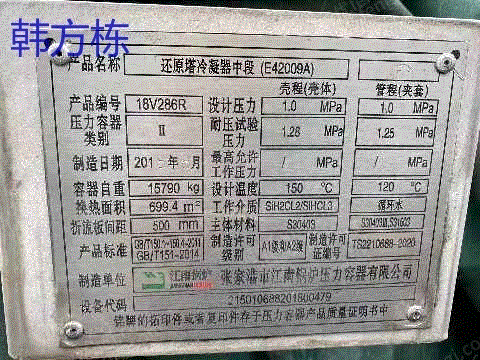 韩方栋
产品名称 还原塔冷凝器中段 (E42009A)
壳程(壳体) 管程(夹套)
产品编号 18V286R 设计压力 1.0 MPa 1.0 MPa
压力容器类别 Ⅱ 耐压试验压力 1.28 MPa 1.25 MPa
制造日期 201 年 月 最高允许工作压力 / MPa / MPa
容器自重 15790 kg 设计温度 150 ℃ 120 ℃
换热面积 699.4 m² 工作介质 SiH2CL2/SiHCL3 循环水
折流板间距 500 mm 主体材料 S30403 S30403Ⅲ,S31603
产品标准 GB/T150.1~150.4-2011 GB/T151-2014 制造许可级别 A1级和A2级 制造许可证编号 TS2210688-2020
制造单位 江南锅炉 张家港市江南锅炉压力容器有限公司
设备代码 215010688201800479
铭牌的拓印件或者复印件存于压力容器产品质量证明书中